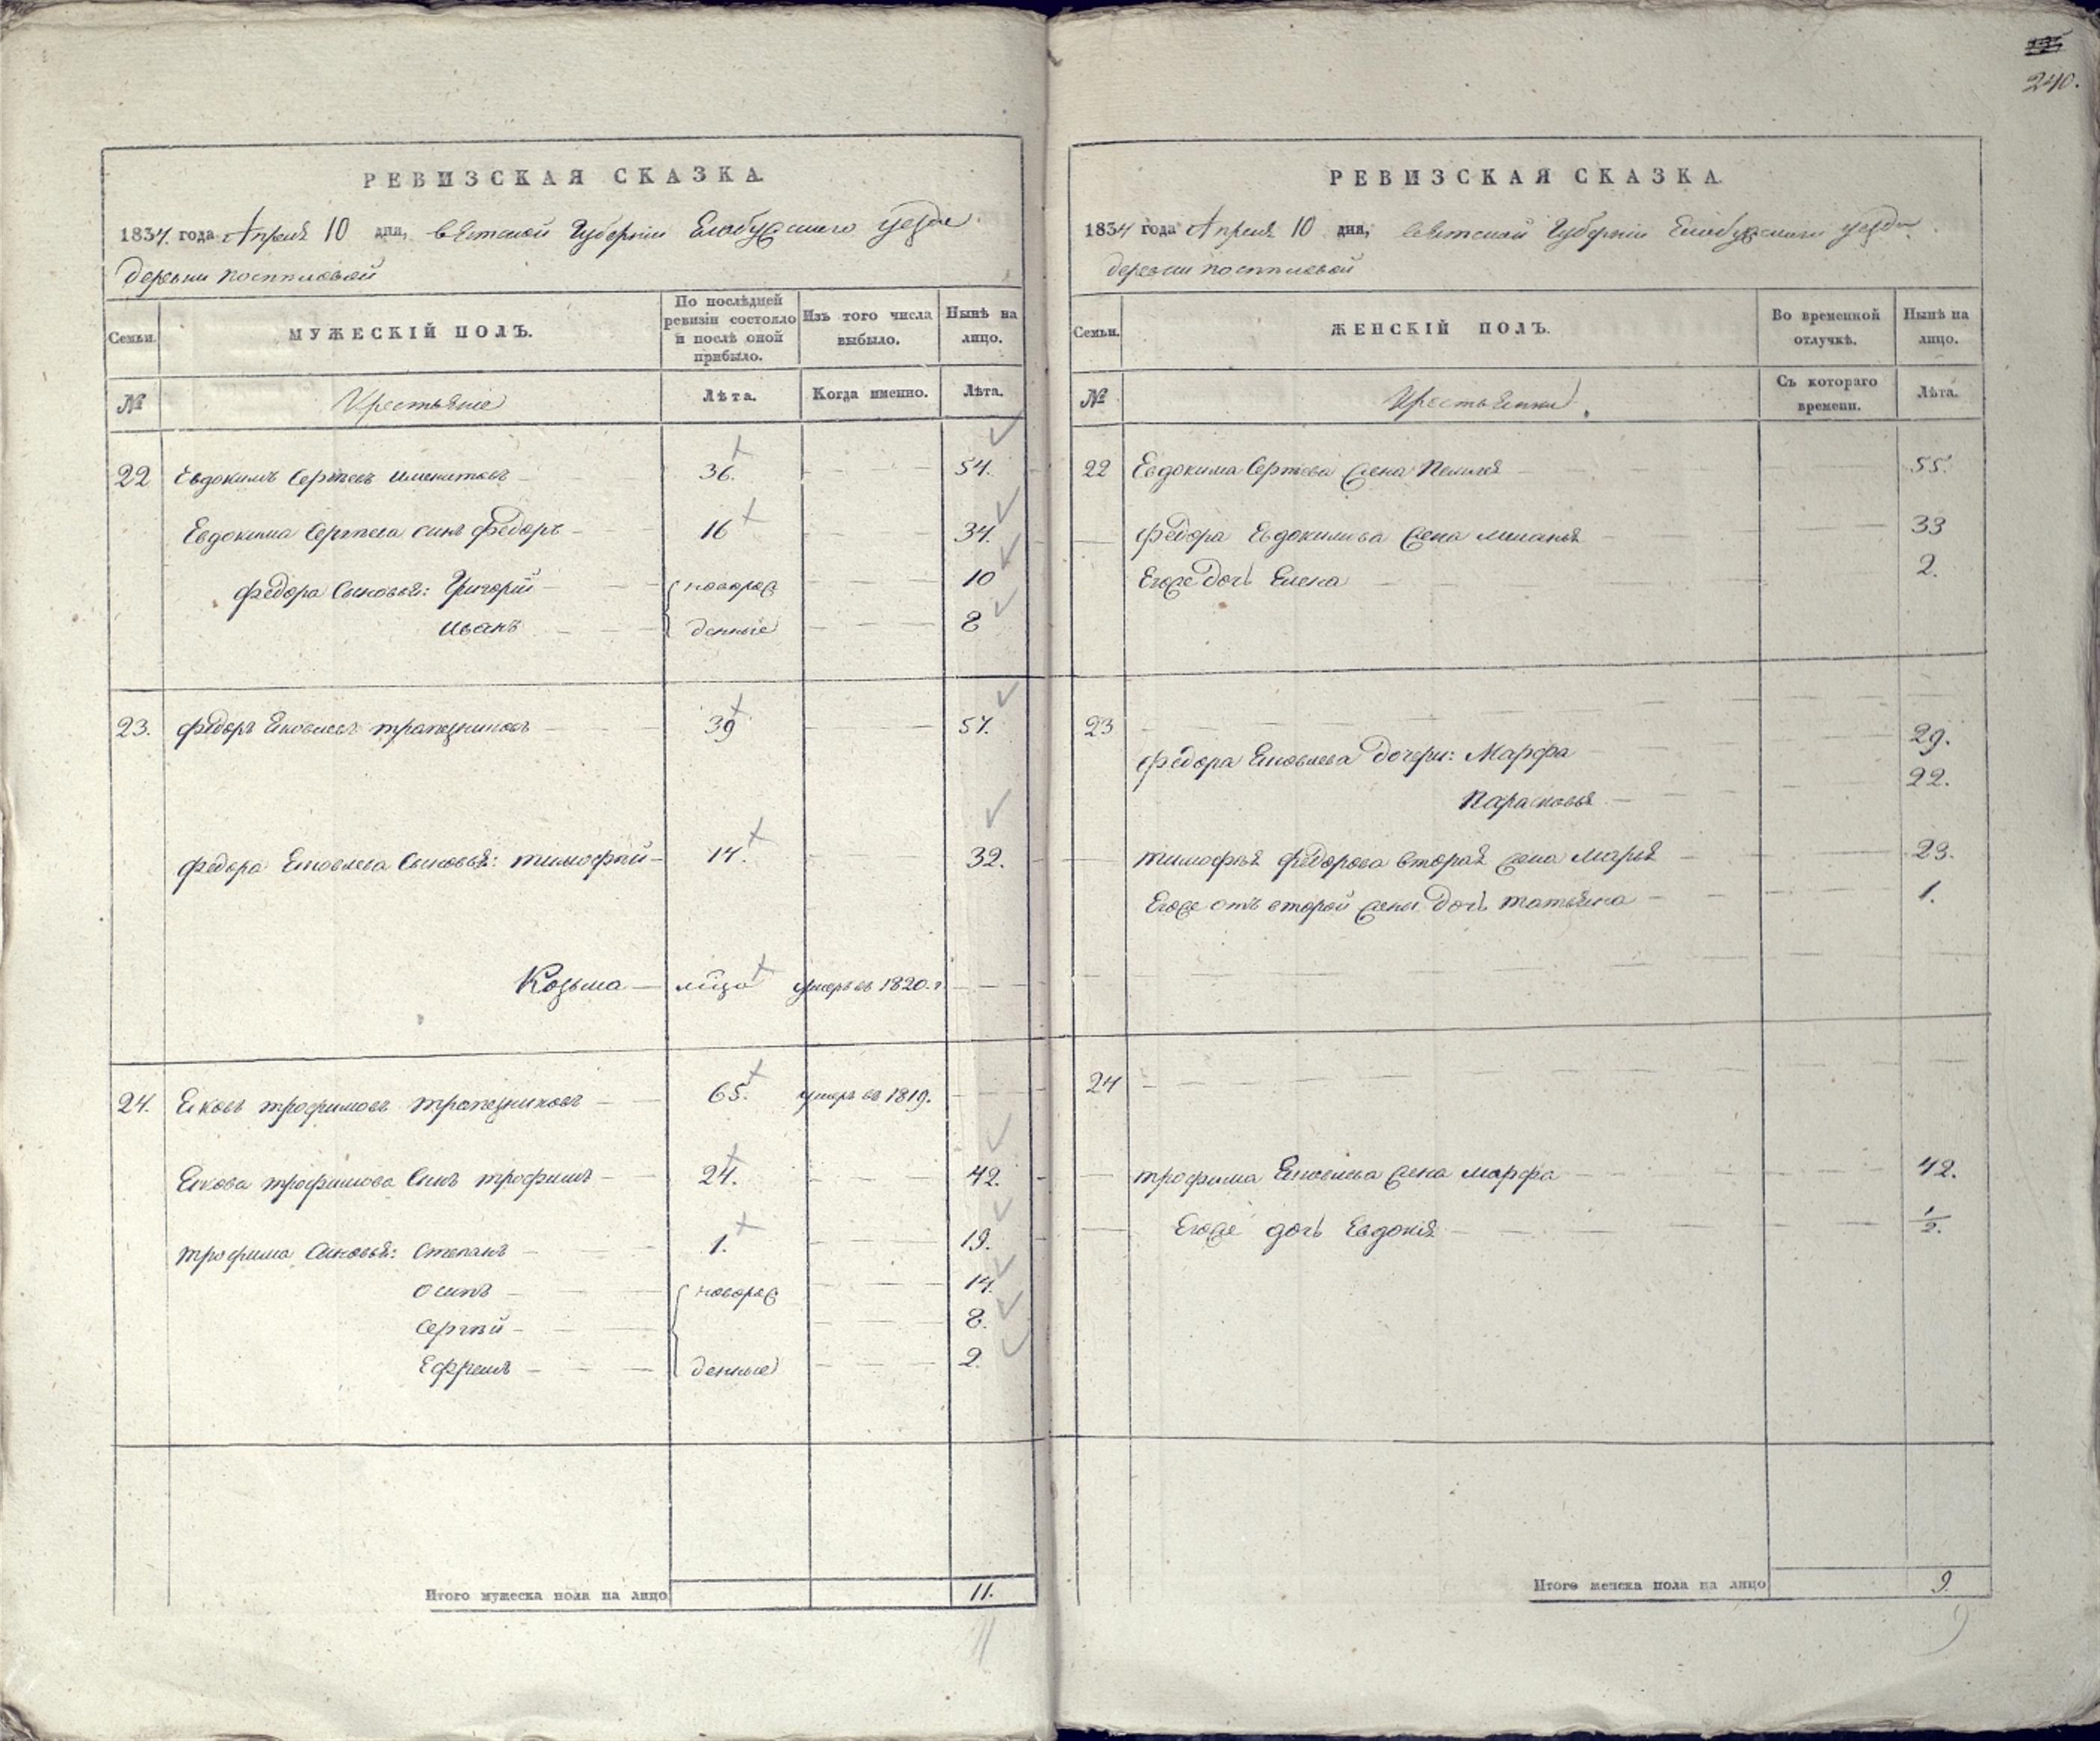 240.
РЕВИЗСКАЯ СКАЗКА.
1834. года Апреля 10 дня, вятской Губернии Елабужского уезда
деревни поспеловой
Семьи. МУЖЕСКІЙ ПОЛЪ. По послѣдней ревизіи состояло и послѣ оной прибыло. Изъ того числа выбыло. Нынѣ на лицо.
№ Крестьяне Лѣта. Когда именно. Лѣта.
22 Евдокимъ Сергеевъ 36. 54.
Евдокима Сергеева сынъ федоръ 16 34.
федора Сыновья: Григорій новорож 10
иванъ денные 8
23. федоръ Яковлевъ трапезниковъ 39 57.
федора Яковлева Сыновья: тимофей 14. 32.
Козьма умеръ въ 1820. г.
24. Яковъ трофимовъ трапезниковъ 65. умеръ въ 1819.
Якова трофимова Сынъ трофимъ 24. 42.
трофима Сыновья: степанъ 1. 19.
осипъ новорож 14.
сергей 8.
Ефремъ денные 2.
Итого мужеска пола на лицо 11.
11
РЕВИЗСКАЯ СКАЗКА.
1834 года Апреля 10 дня, вятской Губернии Елабужского уезда
деревни поспеловой
Семьи. ЖЕНСКІЙ ПОЛЪ. Во временной отлучкѣ. Нынѣ на лицо.
№ Крестьянки Съ котораго времени. Лѣта.
22 Евдокима Сергеева жена 55.
федора Евдокимова жена меланья 33
Егоже дочь Елена 2.
23
федора Яковлева дочери: Марфа 29.
Парасковья 22.
тимофея федорова вторая жена марья 23.
Егоже отъ второй жены дочь татьяна 1.
24
трофима Яковлева жена марфа 42.
Егоже дочь Евдокия 1/2.
Итого женска пола на лицо 9.
9